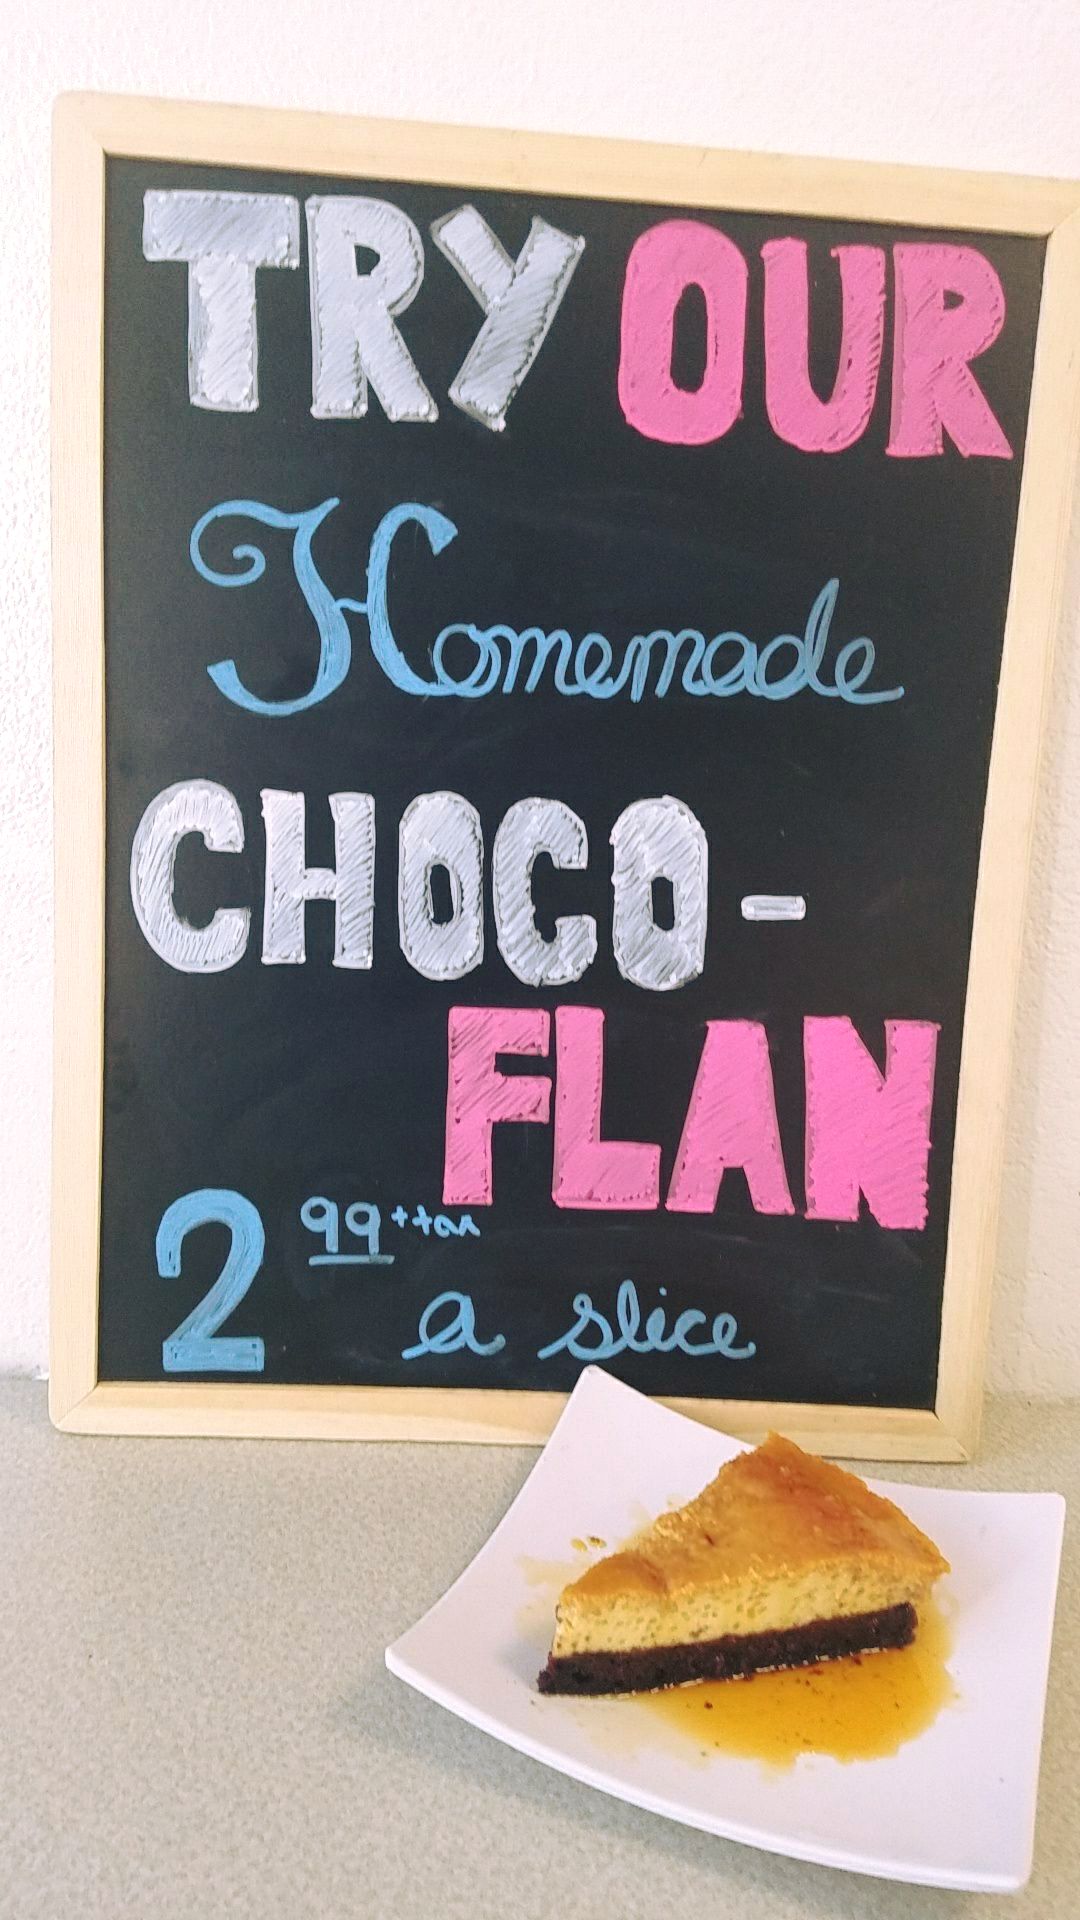 TRY OUR
Homemade
CHOCO-
FLAN
2 99 + tax
a slice